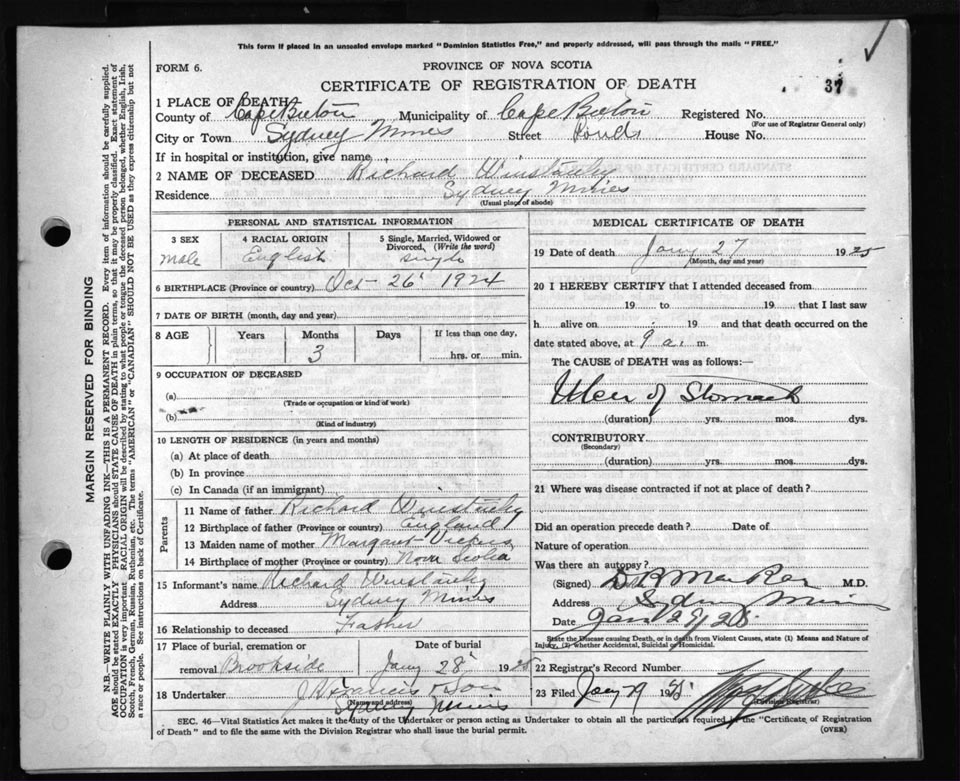 This form if placed in an unsealed envelope marked "Dominion Statistics Free," and properly addressed, will pass through the mails "FREE."
FORM 6.
PROVINCE OF NOVA SCOTIA
CERTIFICATE OF REGISTRATION OF DEATH
37
1 PLACE OF DEATH
County of Cape Breton Municipality of Cape Breton Registered No.
(For use of Registrar General only)
City or Town Sydney Mines Street Ponds House No.
If in hospital or institution, give name
2 NAME OF DECEASED Richard Winstanly
Residence Sydney Mines
(Usual place of abode)
PERSONAL AND STATISTICAL INFORMATION
3 SEX 4 RACIAL ORIGIN 5 Single, Married, Widowed or Divorced, (Write the word)
male English single
6 BIRTHPLACE (Province or country) Oct 26 1924
7 DATE OF BIRTH (month, day and year)
8 AGE Years Months Days If less than one day,
3 hrs. or min.
9 OCCUPATION OF DECEASED
(a)
(Trade or occupation or kind of work)
(b)
(Kind of industry)
10 LENGTH OF RESIDENCE (in years and months)
(a) At place of death
(b) In province
(c) In Canada (if an immigrant)
Parents
11 Name of father Richard Winstanly
12 Birthplace of father (Province or country) England
13 Maiden name of mother Margaret Vickers
14 Birthplace of mother (Province or country) Nova Scotia
15 Informant's name Richard Winstanly
Address Sydney Mines
16 Relationship to deceased Father
17 Place of burial, cremation or removal Date of burial
Brookside Jany 28 1925
18 Undertaker J H Francis & Son
(Name and address)
Sydney Mines
MEDICAL CERTIFICATE OF DEATH
19 Date of death Jany 27 1925
(Month, day and year)
20 I HEREBY CERTIFY that I attended deceased from
19 to 19 that I last saw
h alive on 19 and that death occurred on the
date stated above, at 9 a. m.
The CAUSE of DEATH was as follows:—
Ulcer of Stomach
(duration) yrs. mos. dys.
CONTRIBUTORY
(Secondary)
(duration) yrs. mos. dys.
21 Where was disease contracted if not at place of death?
Did an operation precede death? Date of
Nature of operation
Was there an autopsy?
(Signed) M.D.
Address Sydney Mines
Date Jan 29/25.
State the Disease causing Death, or in death from Violent Causes, state (1) Means and Nature of Injury, (2) whether Accidental, Suicidal or Homicidal.
22 Registrar's Record Number
23 Filed Jany 29 1925
(Division Registrar)
SEC. 46—Vital Statistics Act makes it the duty of the Undertaker or person acting as Undertaker to obtain all the particulars required by the "Certificate of Registration
of Death" and to file the same with the Division Registrar who shall issue the burial permit.
(OVER)
MARGIN RESERVED FOR BINDING
N.B.—WRITE PLAINLY WITH UNFADING INK—THIS IS A PERMANENT RECORD. Every item of information should be carefully supplied.
AGE should be stated EXACTLY. PHYSICIANS should STATE CAUSE OF DEATH in plain terms, so that it may be properly classified. Exact statement of
OCCUPATION is very important. RACIAL ORIGIN will be described by stating to what people or tongue the deceased person belonged, whether English, Irish,
Scotch, French, German, Russian, Ruthenian, etc. The terms "AMERICAN" or "CANADIAN" SHOULD NOT BE USED as they express citizenship but not
a race or people. See instructions on back of Certificate.